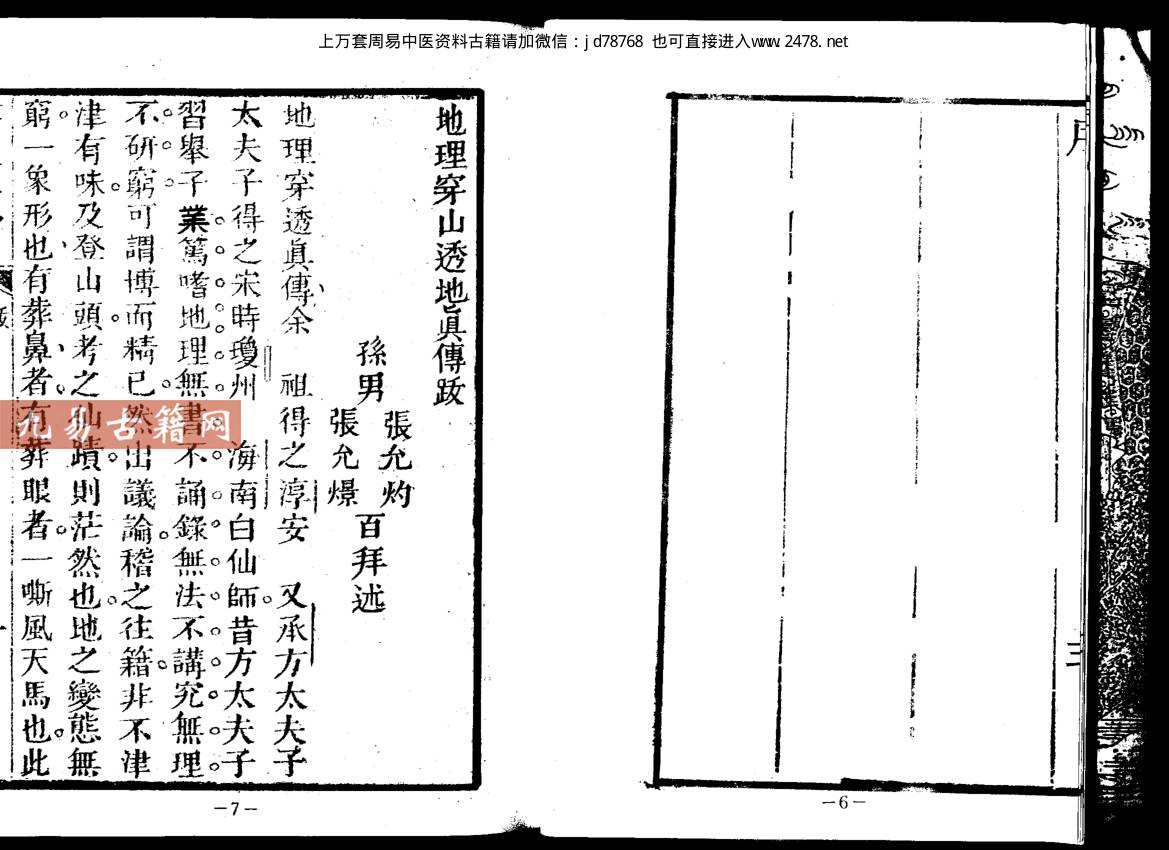 上万套周易中医资料古籍请加微信：jd78768 也可直接进入www.2478.net
地理穿山透地眞傳跋
孫男
張允灼
張允燝
百拜述
地理穿透眞傳余 祖得之淳安 又承方太夫子
太夫子得之宋時瓊州 海南白仙師昔方太夫子
習舉子業篤嗜地理無書不誦錄無法不講究無理
不研窮可謂博而精已然出議論稽之往籍非不津
津有味及登山頭考之仙蹟則茫然也地之變態無
窮一象形也有葬鼻者有葬眼者一嘶風天馬也此
元易古籍网
-7-
-6-